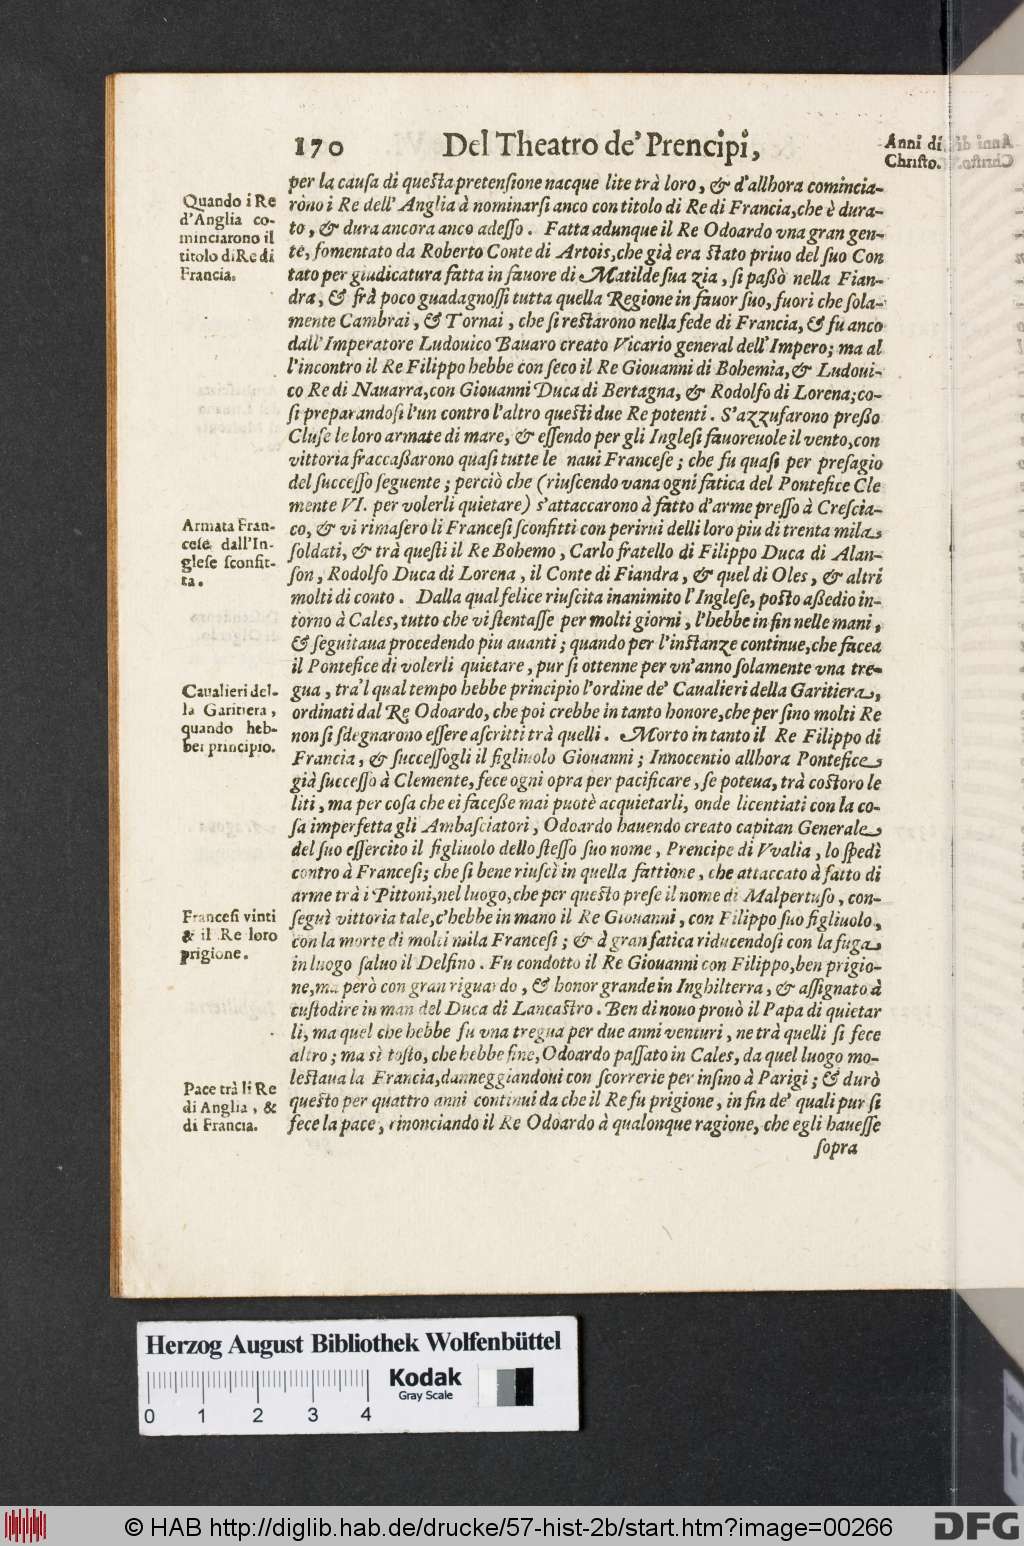 170 Del Theatro de' Prencipi, Anni di
Christo.
Quando i Re
d'Anglia co-
minciarono il
titolo di Re di
Francia.
per la cauſa di queſta pretenſione nacque lite trà loro, & d'allhora comincia-
ròno i Re dell'Anglia à nominarſi anco con titolo di Re di Francia, che è dura-
to, & dura ancora anco adeſſo. Fatta adunque il Re Odoardo vna gran gen-
te, fomentato da Roberto Conte di Artois, che già era ſtato priuo del ſuo Con
tato per giudicatura fatta in fauore di Matilde ſua zia, ſi paßò nella Fian-
dra, & frà poco guadagnoſſi tutta quella Regione in fauor ſuo, fuori che ſola-
mente Cambrai, & Tornai, che ſi reſtarono nella fede di Francia, & fu anco
dall'Imperatore Ludouico Bauaro creato Vicario general dell'Impero; ma al
l'incontro il Re Filippo hebbe con ſeco il Re Giouanni di Bohemia, & Ludoui-
co Re di Nauarra, con Giouanni Duca di Bertagna, & Rodolfo di Lorena; co-
ſi preparandoſi l'un contro l'altro queſti due Re potenti. S'azzufarono preßo
Cluſe le loro armate di mare, & eſſendo per gli Ingleſi fauoreuole il vento, con
vittoria fraccaßarono quaſi tutte le naui Franceſe; che fu quaſi per preſagio
del ſucceſſo ſeguente; perciò che (riuſcendo vana ogni fatica del Pontefice Cle
mente VI. per volerli quietare) s'attaccarono à fatto d'arme preſſo à Creſcia-
Armata Fran-
ceſe dall'In-
gleſe ſconfit-
ta.
co, & vi rimaſero li Franceſi ſconfitti con perirui delli loro piu di trenta mila
ſoldati, & trà queſti il Re Bohemo, Carlo fratello di Filippo Duca di Alan-
ſon, Rodolfo Duca di Lorena, il Conte di Fiandra, & quel di Oles, & altri
molti di conto. Dalla qual felice riuſcita inanimito l'Ingleſe, poſto aßedio in-
torno à Cales, tutto che vi ſtentaſſe per molti giorni, l'hebbe in fin nelle mani,
& ſeguitaua procedendo piu auanti; quando per l'inſtanze continue, che facea
il Pontefice di volerli quietare, pur ſi ottenne per vn'anno ſolamente vna tre-
Caualieri del-
la Garitiera,
quando heb-
bei principio.
gua, tra'l qual tempo hebbe principio l'ordine de' Caualieri della Garitiera,
ordinati dal Re Odoardo, che poi crebbe in tanto honore, che per ſino molti Re
non ſi ſdegnarono eſſere aſcritti trà quelli. Morto in tanto il Re Filippo di
Francia, & ſucceſſogli il figliuolo Giouanni; Innocentio allhora Pontefice
già ſucceſſo à Clemente, fece ogni opra per pacificare, ſe poteua, trà coſtoro le
liti, ma per coſa che ei faceße mai puotè acquietarli, onde licentiati con la co-
ſa imperfetta gli Ambaſciatori, Odoardo hauendo creato capitan Generale
del ſuo eſſercito il figliuolo dello ſteſſo ſuo nome, Prencipe di Vvalia, lo ſpedì
contro à Franceſi; che ſi bene riuſcì in quella fattione, che attaccato à fatto di
arme trà i Pittoni, nel luogo, che per queſto preſe il nome di Malpertuſo, con-
Franceſi vinti
& il Re loro
prigione.
ſeguì vittoria tale, c'hebbe in mano il Re Giouanni, con Filippo ſuo figliuolo,
con la morte di molti mila Franceſi; & à gran fatica riducendoſi con la fuga
in luogo ſaluo il Delfino. Fu condotto il Re Giouanni con Filippo, ben prigio-
ne, ma però con gran riguardo, & honor grande in Inghilterra, & aſſignato à
cuſtodire in man del Duca di Lancaſtro. Ben di nouo prouò il Papa di quietar
li, ma quel che hebbe fu vna tregua per due anni venturi, ne trà quelli ſi fece
altro; ma sì toſto, che hebbe fine, Odoardo paſſato in Cales, da quel luogo mo-
leſtaua la Francia, danneggiandoui con ſcorrerie per inſino à Parigi; & durò
Pace trà li Re
di Anglia, &
di Francia.
queſto per quattro anni continui da che il Re fu prigione, in fin de' quali pur ſi
fece la pace, rinonciando il Re Odoardo à qualonque ragione, che egli haueſſe
ſopra
Herzog August Bibliothek Wolfenbüttel
Kodak
Gray Scale
0 1 2 3 4
© HAB http://diglib.hab.de/drucke/57-hist-2b/start.htm?image=00266
DFG